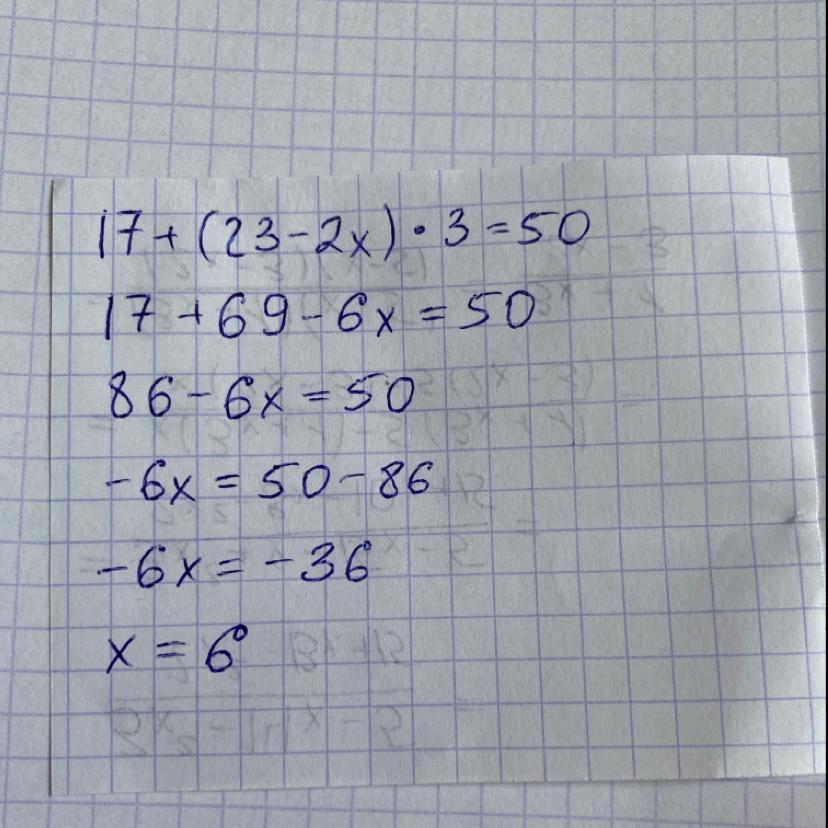 17+(23-2x)·3=50
17+69-6x=50
86-6x=50
-6x=50-86
-6x=-36
x=6